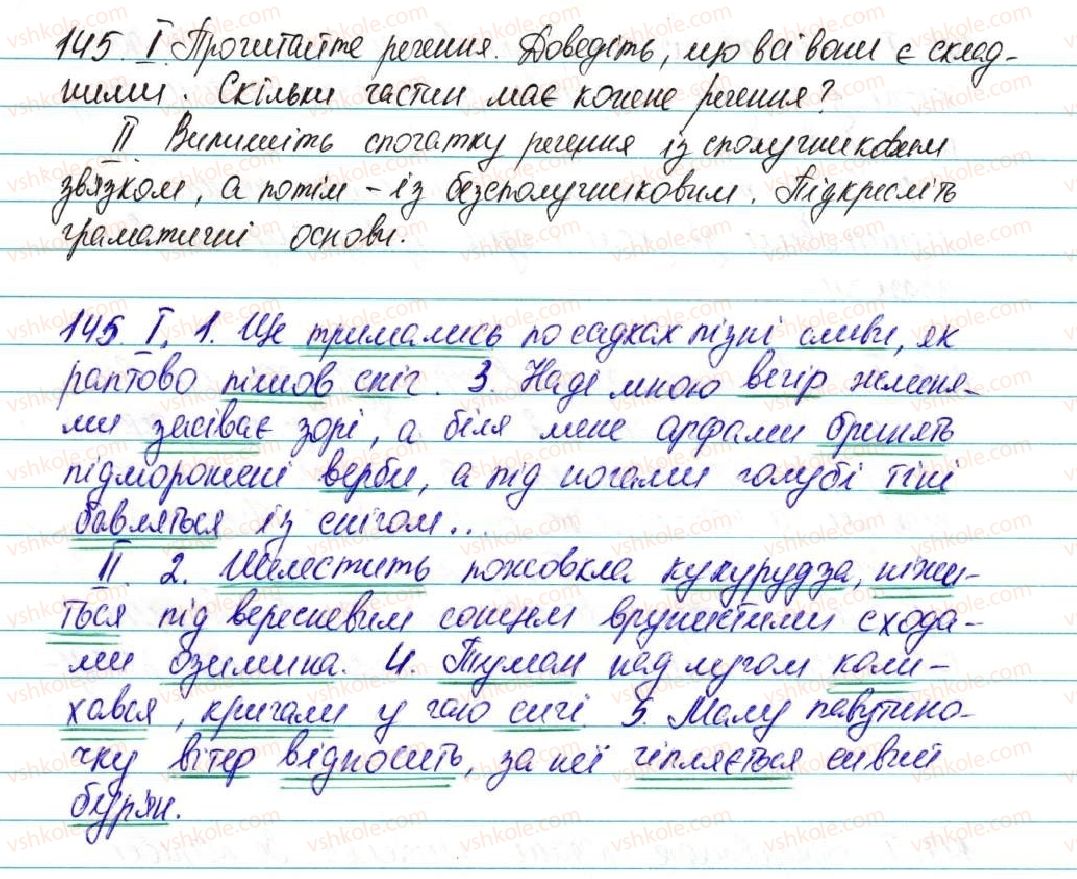 145. I. Прочитайте речення. Доведіть, що всі вони є склад-
ними. Скільки частин має кожне речення?
II. Випишіть спочатку речення із сполучниковим
зв'язком, а потім – із безсполучниковим. Підкресліть
граматичні основи.
145. I. 1. Ще тримались по садках пізні сливи, як
раптово пішов сніг. 3. Наді мною вечір жменя-
ми засіває зорі, а біля мене арфами бринять
підморожені верби, а під ногами голубі тіні
бавляться із снігом...
II. 2. Шелестить пожовкла кукурудза, ніжи-
ться під вересневим сонцем врунистими схода-
ми озимина. 4. Туман над лугом коли-
хався, кричали у гаю сичі. 5. Малу павутино-
чку вітер відносить, за неї чіпляється сивий
бур'ян.